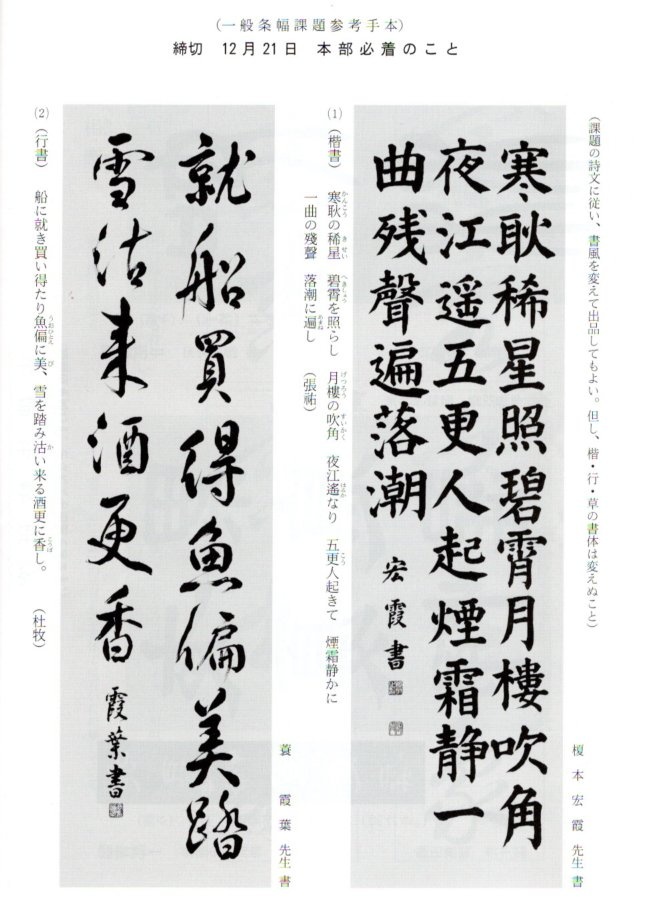 (一般条幅課題参考手本)
締切 12月21日 本部必着のこと
(課題の詩文に従い、書風を変えて出品してもよい。但し、楷・行・草の書体は変えぬこと)
寒耿稀星照碧霄月樓吹角
夜江遥五更人起煙霜静一
曲残聲遍落潮
宏霞書
榎本宏霞先生書
(1) (楷書) 寒耿の稀星 碧霄を照らし 月樓の吹角 夜江遙なり 五更人起きて 煙霜静かに
一曲の殘聲 落潮に遍し (張祐)
就船買得魚偏美踏
雪沽来酒更香
霞葉書
蓑霞葉先生書
(2) (行書) 船に就き買い得たり魚偏に美、雪を踏み沽い来る酒更に香し。 (杜牧)